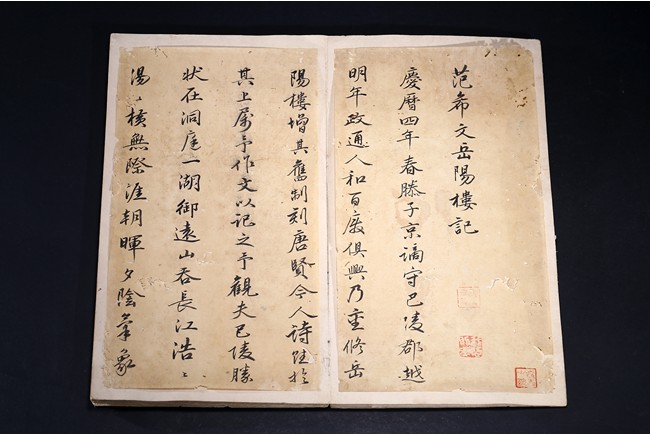 范希文岳陽樓記
慶曆四年春滕子京謫守巴陵郡越
明年政通人和百廢俱興乃重修岳
陽樓增其舊制刻唐賢今人詩賦於
其上屬予作文以記之予觀夫巴陵勝
状在洞庭一湖銜遠山吞長江浩〻
湯〻橫無際涯朝暉夕陰氣象